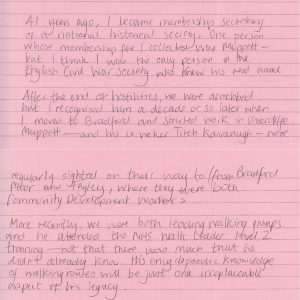 41 years ago, I became membership secretary
of a national historical society. One person
whose membership fee I collected was Muppett —
but I think I was the only person in the
English Civil War Society who knew his real name!
After the end of hostilities, we were demobbed
but I recognised him a decade or so later when
I moved to Bradford and started work in
Muppett — and his co-worker Titch Kavanagh — were
regularly sighted on their way to/from Bradford
Moor and Fagley, where they were both
Community Development Workers
More recently, we were both leading walking groups
and he attended the NHS Walk Leader Level 2
training — not that there was much that he
didn't already know. His encyclopaedic knowledge
of walking routes will be just one irreplaceable
aspect of his legacy.